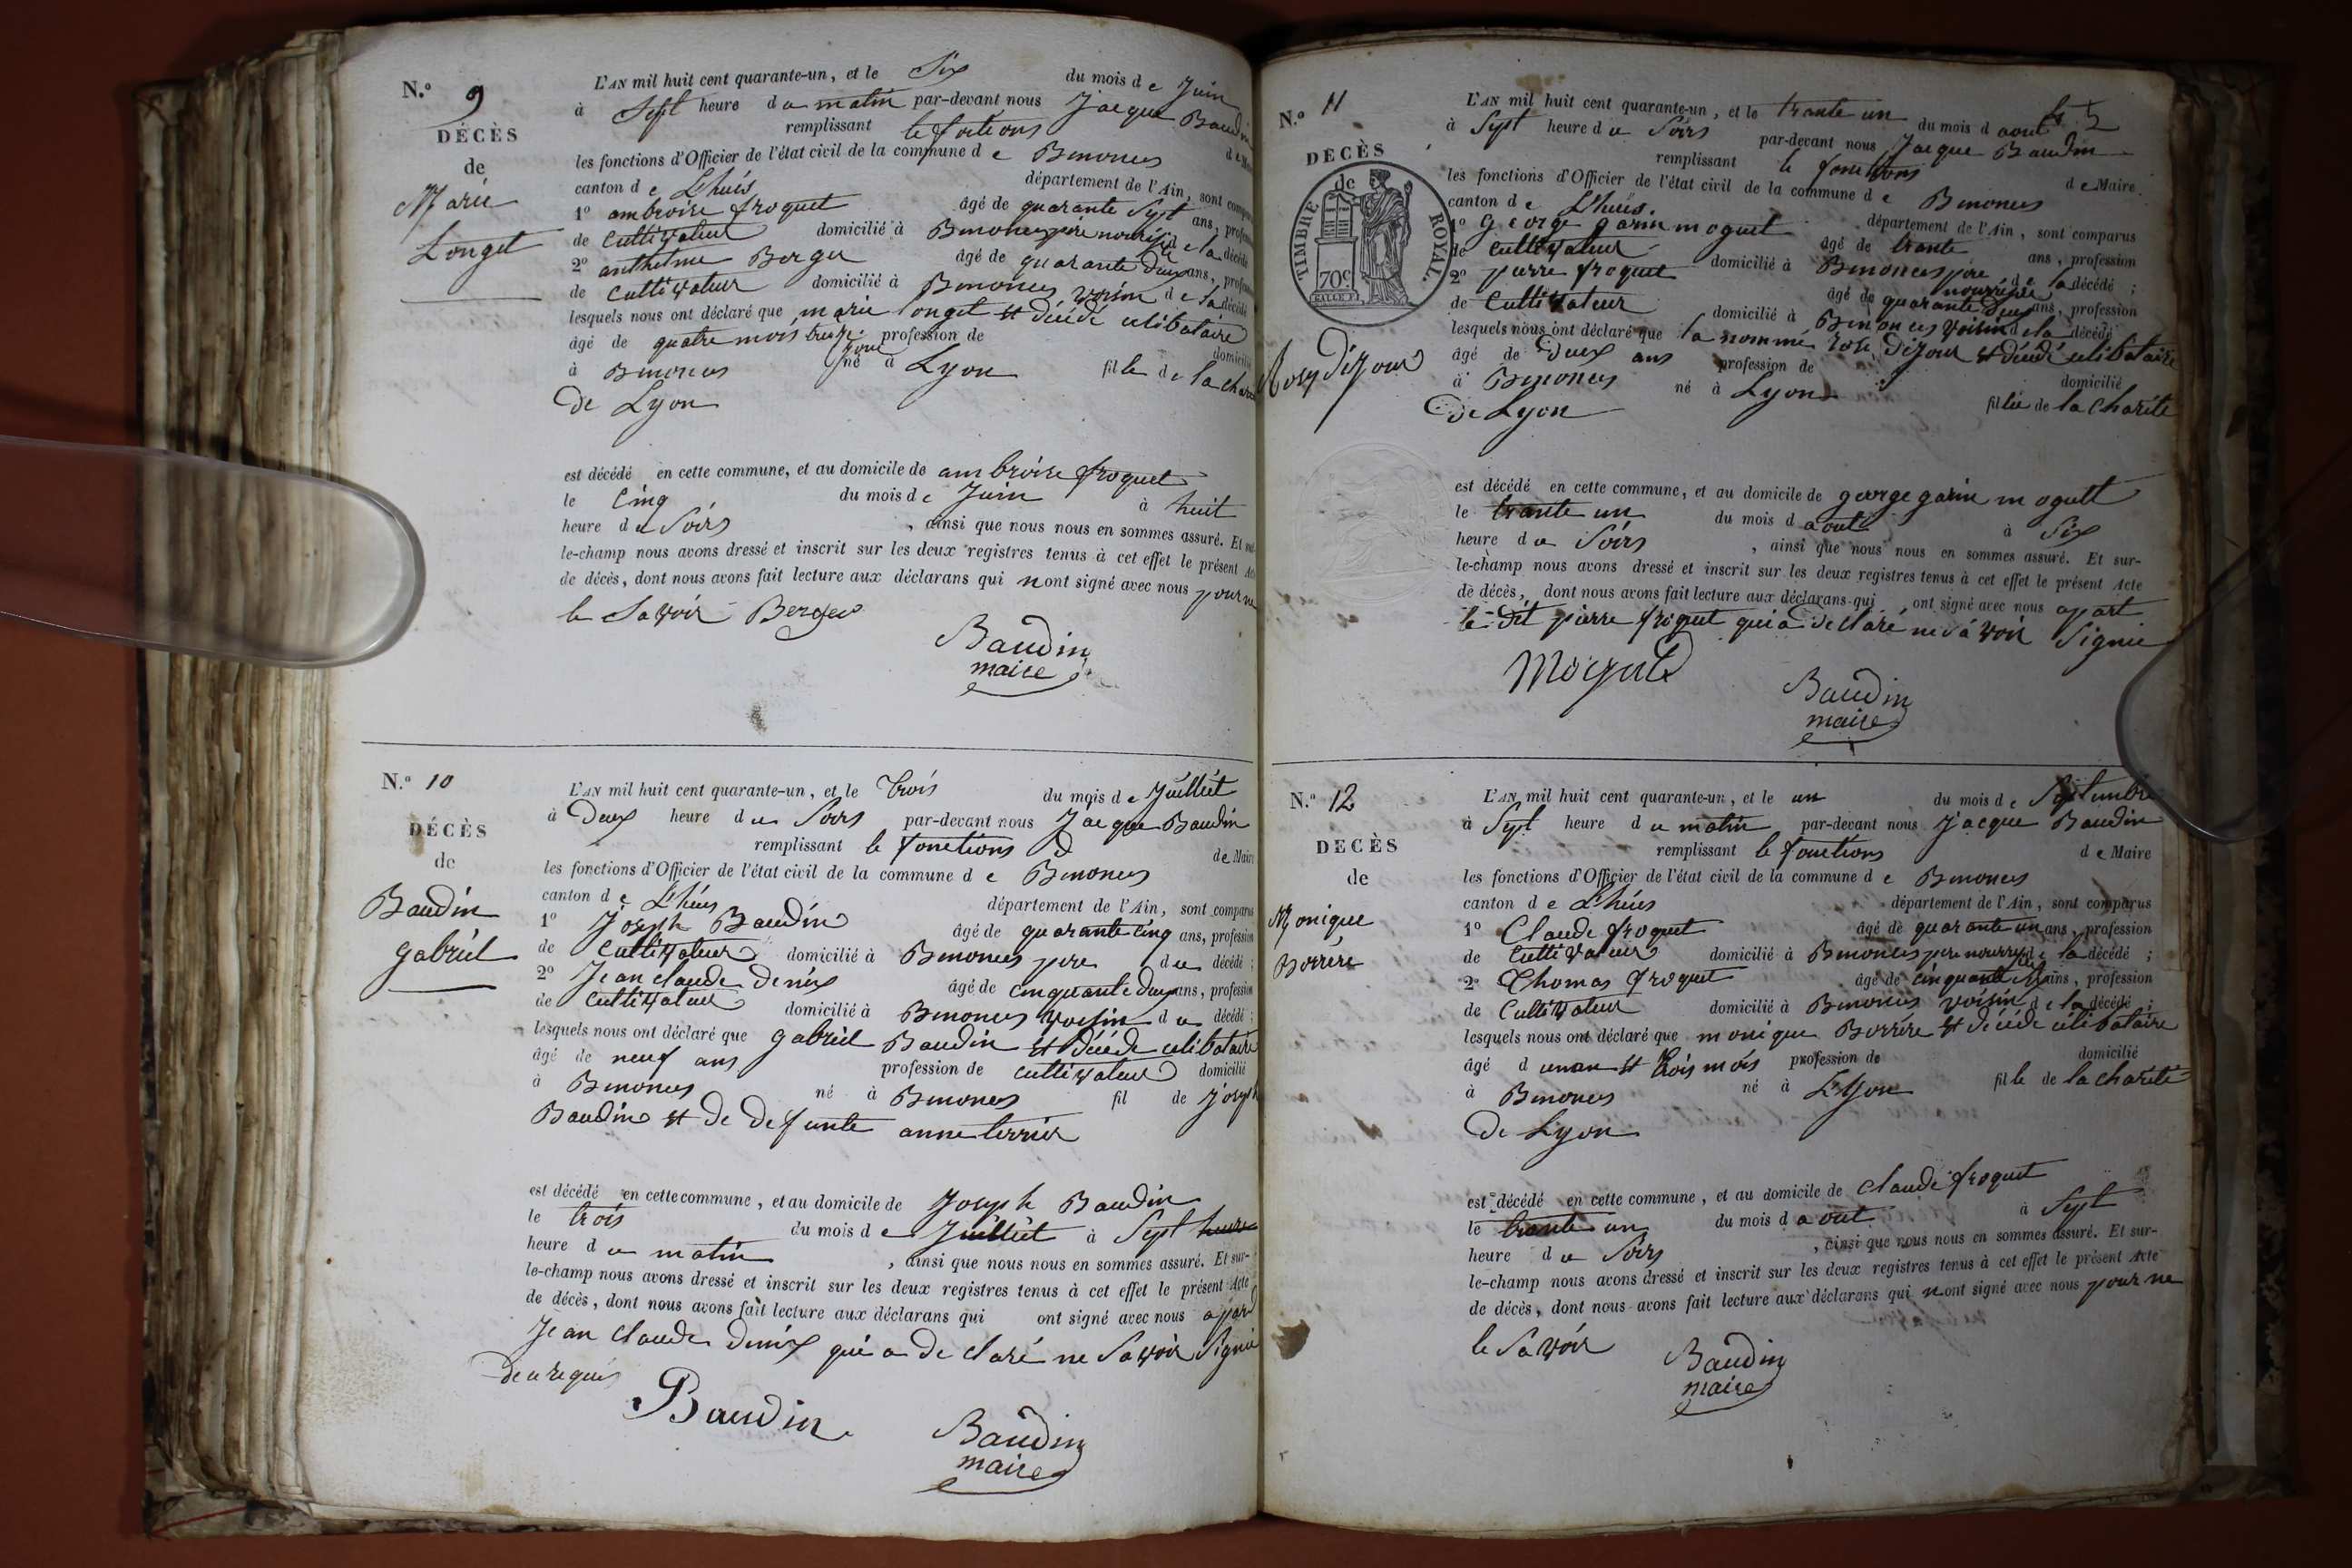 N.° 9
DÉCÈS
de
Marie
Longet
L'AN mil huit cent quarante-un, et le Six du mois de Juin
à Sept heure du matin par-devant nous Jacque Baudin
remplissant le foitions de Mai
les fonctions d'Officier de l'état civil de la commune de Benonces
canton de L'huis département de l'Ain, sont comparus
1° ambroise froquet âgé de quarante Sept ans, profession
de Cultivateur domicilié à Benonces pere nourisie de la décédé
2° anthelme Berger âgé de quarante deux ans, profession
de Cultivateur domicilié à Benonces voisin de la décédé
lesquels nous ont déclaré que marie longet et décédé celibataire
âgé de quatre mois treize jour profession de domicilié
à Benonces né à Lyon fille de la charité
De Lyon
est décédé en cette commune, et au domicile de ambroise froquet
le Cinq du mois de Juin à huit
heure du Soirs, ainsi que nous nous en sommes assuré. Et sur-
le-champ nous avons dressé et inscrit sur les deux registres tenus à cet effet le présent Acte
de décès, dont nous avons fait lecture aux déclarans qui nont signé avec nous pour ne
le Savoir Berger
Baudin
maire
N.° 10
DÉCÈS
de
Baudin
gabriel
L'AN mil huit cent quarante-un, et le trois du mois de Juilliet
à Deux heure du Soirs par-devant nous Jacque Baudin
remplissant le fonctions d de Maire
les fonctions d'Officier de l'état civil de la commune de Benonces
canton de L'huis département de l'Ain, sont comparus
1° Joseph Baudin âgé de quarante cinq ans, profession
de Cultivateur domicilié à Benonces pere du décédé ;
2° Jean claude denix âgé de cinquante deux ans, profession
de Cultivateur domicilié à Benonces voisin du décédé ;
lesquels nous ont déclaré que gabriel Baudin et décédé celibataire
âgé de neuf ans profession de cultivateur domicilié
à Benonces né à Benonces fil de Joseph
Baudin et de defunte anne terrier
est décédé en cette commune, et au domicile de Joseph Baudin
le trois du mois de Juilliet à Sept heure
heure du matin, ainsi que nous nous en sommes assuré. Et sur-
le-champ nous avons dressé et inscrit sur les deux registres tenus à cet effet le présent Acte
de décès, dont nous avons fait lecture aux déclarans qui ont signé avec nous apart
Jean claude denix qui a de claré ne Savoir Signie
de ce requis
Baudin
Baudin
maire
N.° 11
DÉCÈS
de
TIMBRE ROYAL
70c
Rose Dijour
L'AN mil huit cent quarante-un, et le trante un du mois d aout
à Sept heure du Soirs par-devant nous Jacque Baudin
remplissant le fonctions de Maire
les fonctions d'Officier de l'état civil de la commune de Benonces
canton de L'huis. département de l'Ain, sont comparus
1° George garin moguet âgé de trante ans, profession
de Cultivateur domicilié à Benonces pere nourisie de la décédé ;
2° pierre froquet âgé de quarante deux ans, profession
de Cultivateur domicilié à Benonces voisin de la décédé
lesquels nous ont déclaré que la nommé rose Dijour et décédé celibataire
âgé de Deux ans profession de domicilié
à Benonces né à Lyon fillie de la charité
De Lyon
est décédé en cette commune, et au domicile de george garin mogutt
le trante un du mois d aout à Six
heure du Soirs, ainsi que nous nous en sommes assuré. Et sur-
le-champ nous avons dressé et inscrit sur les deux registres tenus à cet effet le présent Acte
de décès, dont nous avons fait lecture aux déclarans qui ont signé avec nous apart
le dit pierre froquet qui a declaré ne sa voir Signie
Baudin
maire
N.° 12
DÉCÈS
de
Monique
Borrére
L'AN mil huit cent quarante-un, et le un du mois de Septembre
à Sept heure du matin par-devant nous Jacque Baudin
remplissant le fonctions de Maire
les fonctions d'Officier de l'état civil de la commune de Benonces
canton de L'huis département de l'Ain, sont comparus
1° Claude froquet âgé de quarante un ans, profession
de Cultivateur domicilié à Benonces pere nourrisie de la décédé ;
2° Thomas froquet âgé de cinquante ans, profession
de Cultivateur domicilié à Benonces voisin de la décédé ;
lesquels nous ont déclaré que monique Borrére et décédé célibataire
âgé d unan et trois mois profession de domicilié
à Benonces né à Lyon fille de la charité
De Lyon
est décédé en cette commune, et au domicile de claude froquet
le trante un du mois d aout à Sept
heure du Soirs, ainsi que nous nous en sommes assuré. Et sur-
le-champ nous avons dressé et inscrit sur les deux registres tenus à cet effet le présent Acte
de décès, dont nous avons fait lecture aux déclarans qui nont signé avec nous pour ne
le Savoir
Baudin
maire